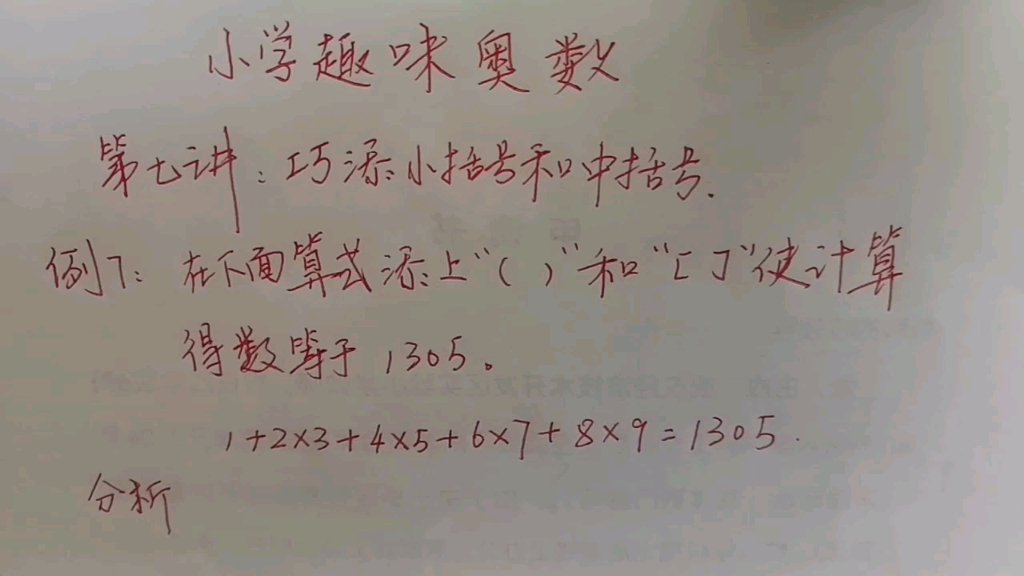 小学趣味奥数
第七讲：巧添小括号和中括号.
例7：在下面算式添上“（ ）”和“[ ]”使计算
得数等于1305。
1+2×3+4×5+6×7+8×9=1305.
分析